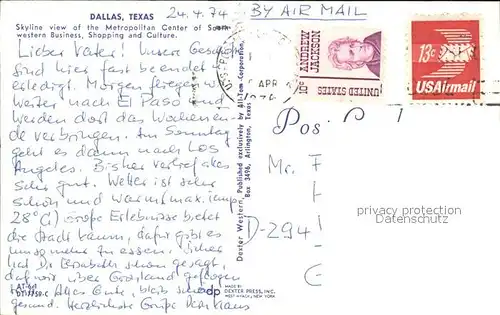 DALLAS, TEXAS
24.4.74
BY AIR MAIL
Skyline view of the Metropolitan Center of South-
western Business, Shopping and Culture.
Lieber Vater! Unsere Geschäfte
sind hier fast beendet
erledigt. Morgen fliegen wir
weiter nach El Paso und
werden dort das Wochenen-
de verbringen. Am Sonntag
geht es dann nach Los
Angeles. Bisher verlief alles
sehr gut. Wetter ist sehr
schön und warm (maximal
28°C) Große Erlebnisse bietet
die Stadt kaum, dafür gibt es
umso mehr zu essen. Sicher
hat Dir Elisabeth schon gesagt,
daß wir über Grönland geflogen
Alles Gute, bleib schön
gesund. Herzlichste Grüße Dein Klaus
AT-64
DT-7759-C
MADE BY
DEXTER PRESS, INC.
WEST NYACK, NEW YORK
dp
Dexter Western, Published exclusively by All-Tom Corporation,
Box 3496, Arlington, Texas
APR
ANDREW
JACKSON
10c
UNITED STATES
13c
USAirmail
Pos
Mr. F
H
D-294
G
privacy protection
Datenschutz